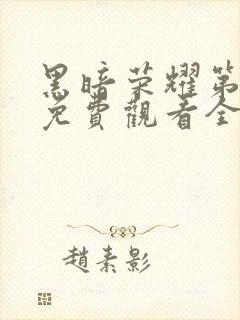 黑暗荣耀第
免費觀看全
趙素影